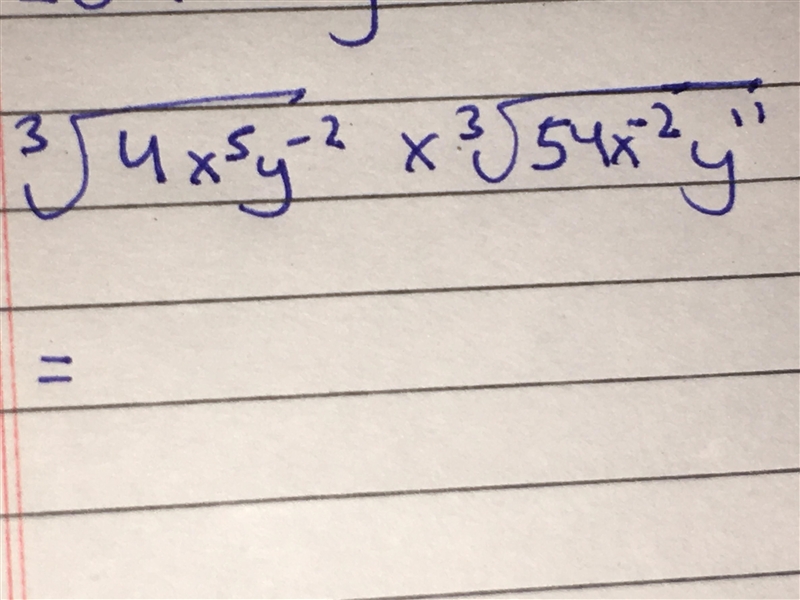 ∛(4x⁵y⁻²) × ∛(54x⁻²y¹¹)
=